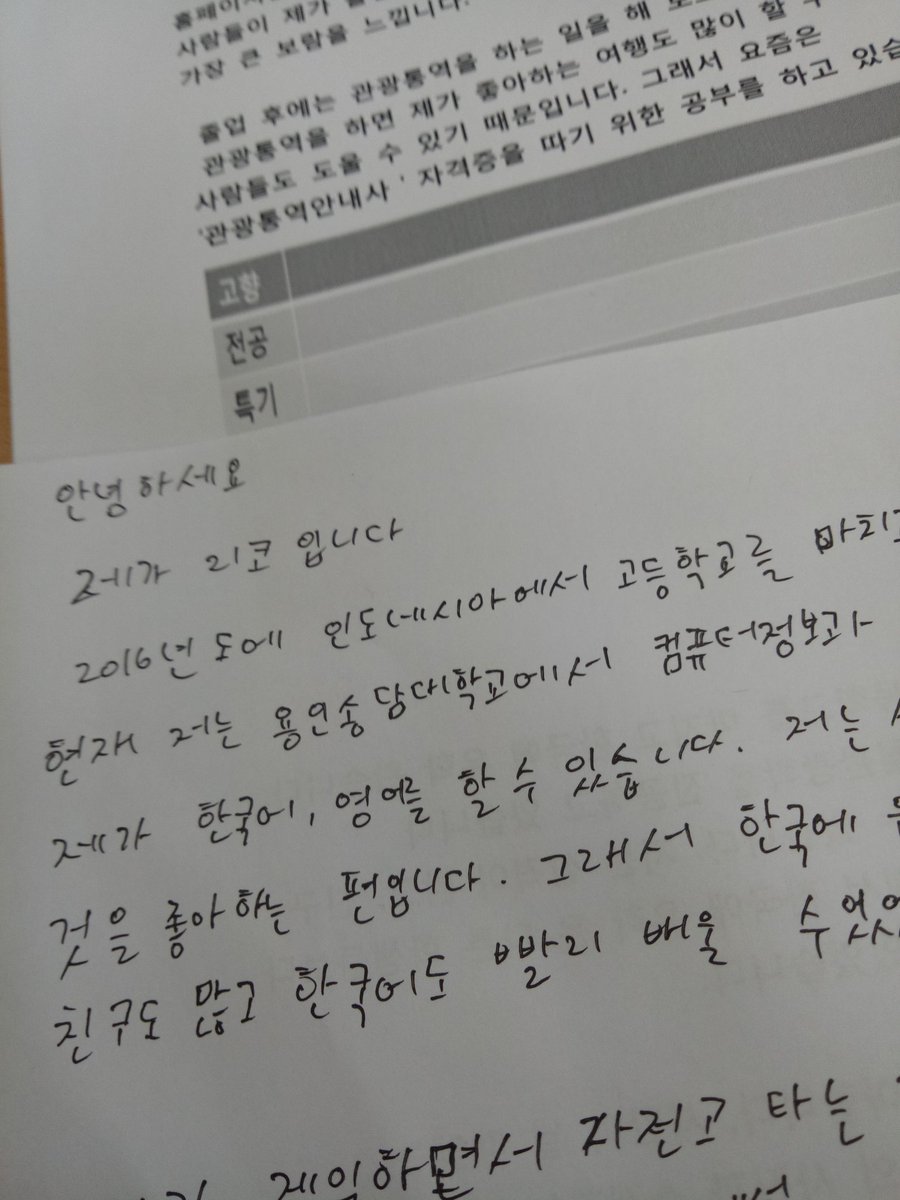 사람들이 제가
가장 큰 보람을 느낍니다.
졸업 후에는 관광통역을 하는 일을 해
관광통역을 하면 제가 좋아하는 여행도 많이 할
사람들도 도울 수 있기 때문입니다. 그래서 요즘은
'관광통역안내사' 자격증을 따기 위한 공부를 하고
고향
전공
특기
안녕하세요
제가 리코 입니다
2016년도에 인도네시아에서 고등학교를 마치고
현재 저는 용인송담대학교에서 컴퓨터정보과
제가 한국어, 영어를 할 수 있습니다. 저는
것을 좋아하는 편입니다. 그래서 한국에
친구도 많고 한국어도 빨리 배울 수있었
게임하면서 자전고 타는